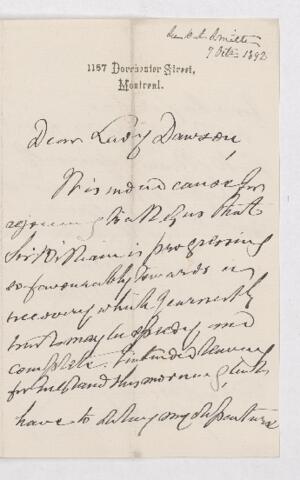 7 Oct 1892
1157 Dorchester Street,
Montreal.
Dear Lady Dawson,
It is indeed cause for
rejoicing to all of us that
Sir William is progressing
so favourably towards
recovery which I earnestly
trust may be speedy and
complete. I intended leaving
for this morning, but
have to delay my departure